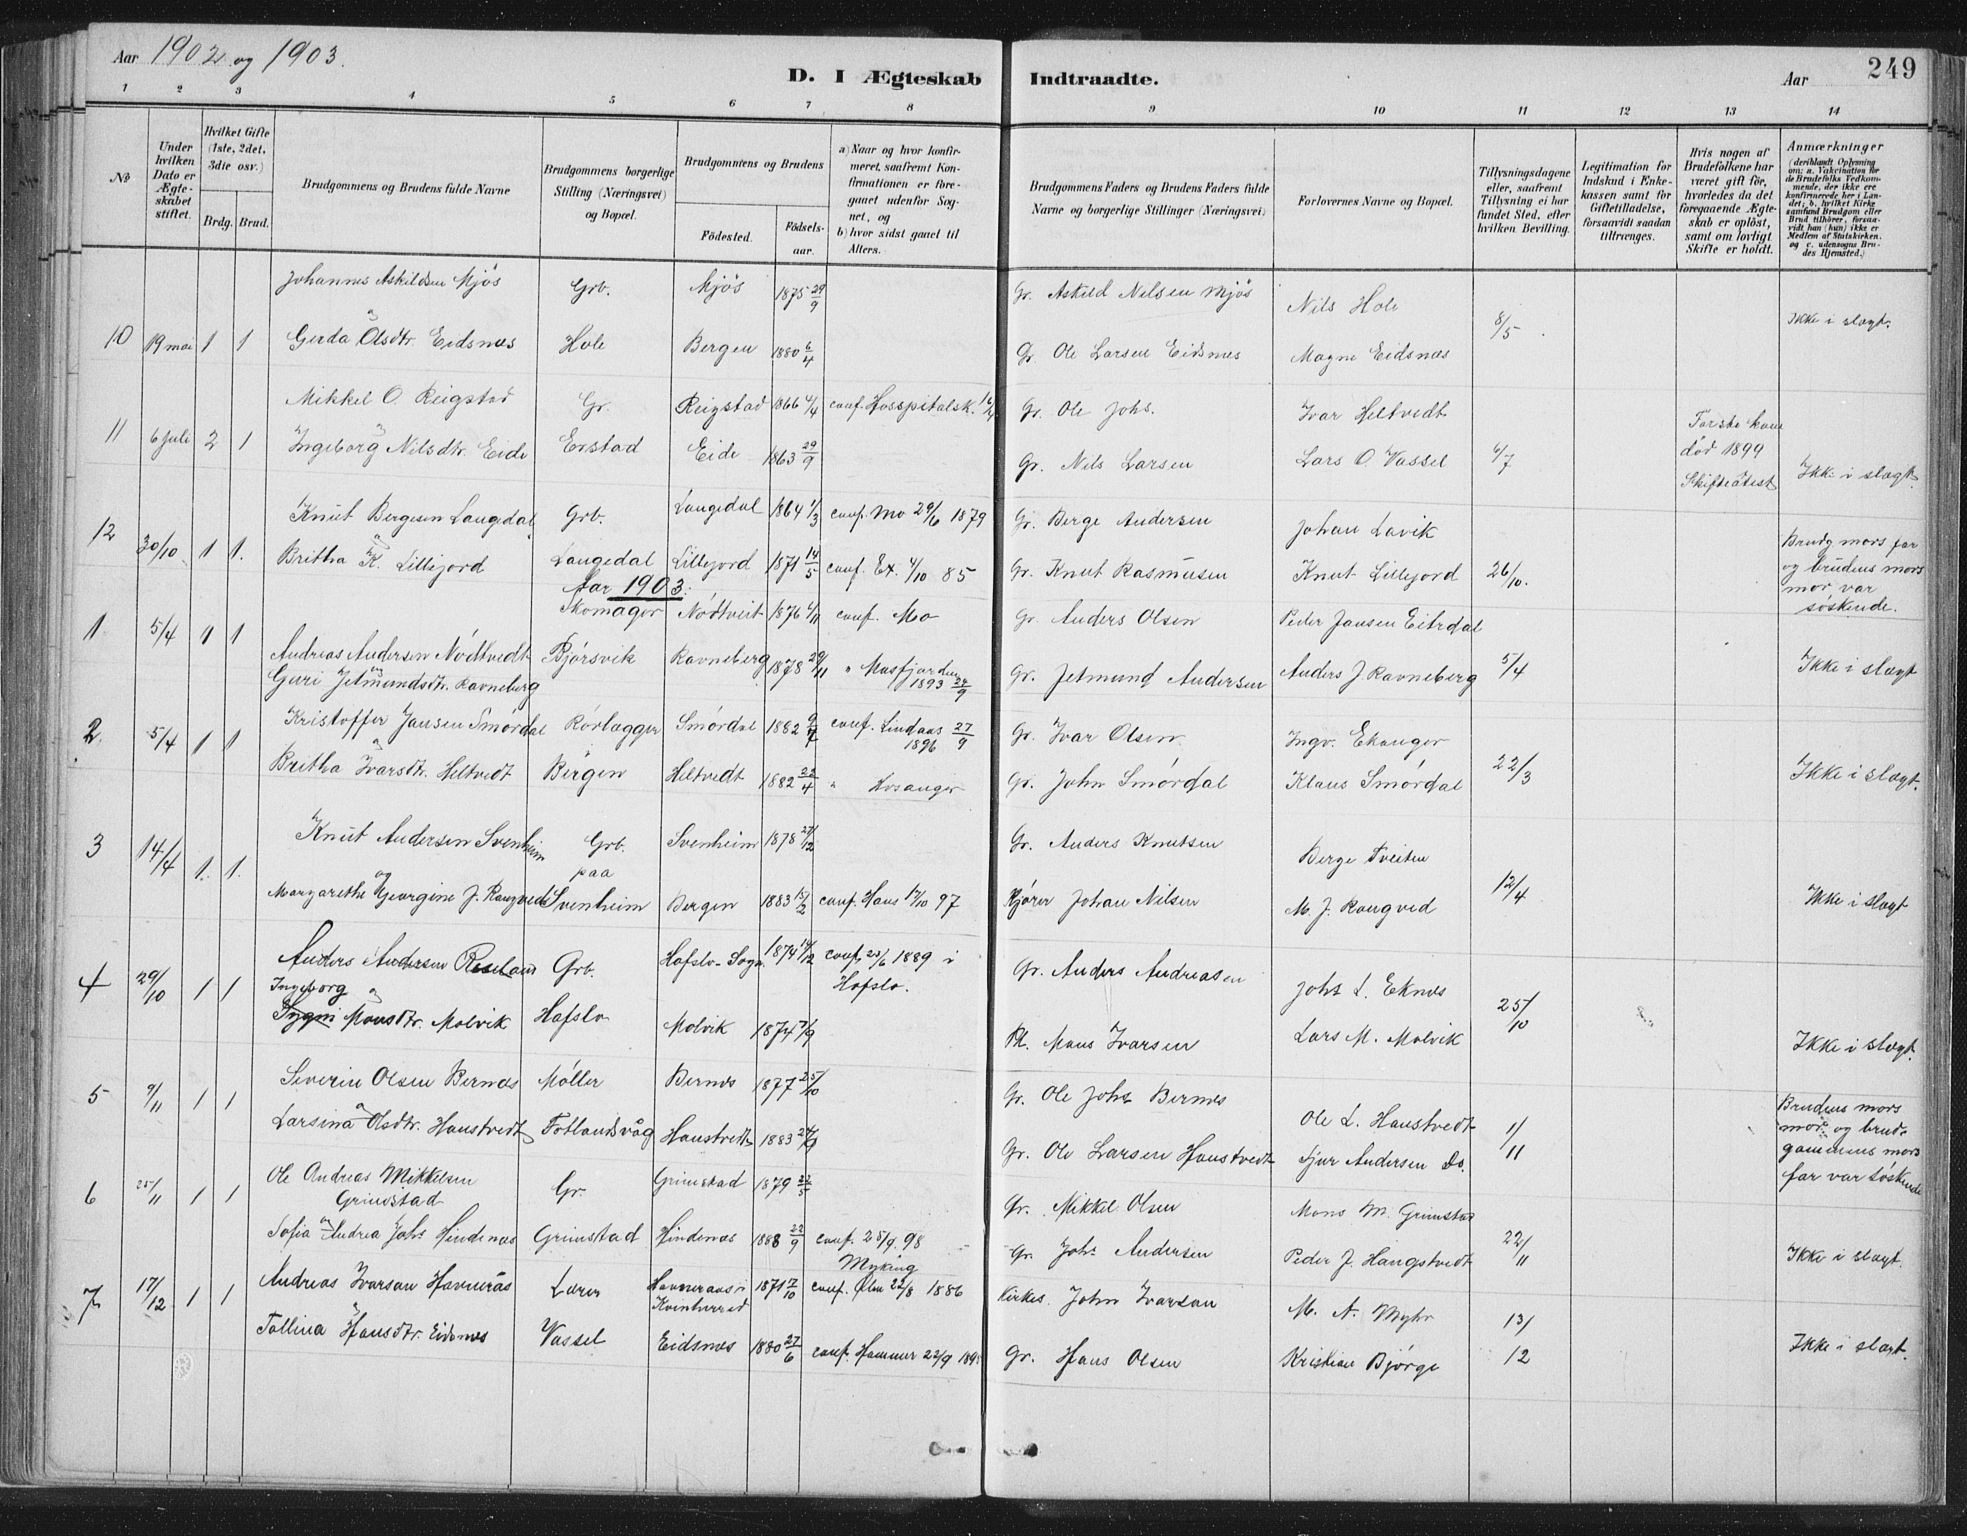 Aar 1902 og 1903.
D. I Ægteskab Indtraadte.
Aar 249
1 2 3 4 5 6 7 8 9 10 11 12 13 14
No.
Under hvilken Dato er Ægteskabet stiftet.
Hvilket Gifte (1ste, 2det, 3die osv.)
Brdg. Brud.
Brudgommens og Brudens fulde Navne
Brudgommens borgerlige Stilling (Næringsvei) og Bopæl.
Brudgommens og Brudens
Fødested. Fødselsaar.
a) Naar og hvor konfirmeret, saafremt Konfirmationen er foregaaet udenfor Sognet, og
b) hvor sidst gaaet til Alters.
Brudgommens Faders og Brudens Faders fulde Navne og borgerlige Stillinger (Næringsvei)
Forlovernes Navne og Bopæl.
Tillysningsdagene eller, saafremt Tillysning ei har fundet Sted, efter hvilken Bevilling.
Legitimation for Indskud i Enkekassen samt for Giftetilladelse, forsaavidt saadan tiltrænges.
Hvis nogen af Brudefolkene har været gift før, hvorledes da det foregaaende Ægteskab er opløst, samt om lovligt Skifte er holdt.
Anmærkninger (deriblandt Oplysning om: a. Vakcination for de Brudefolks Vedkommende, der ikke ere konfirmerede her i Landet; b. hvilket Kirkesamfund Brudgom eller Brud tilhører, forsaavidt han (hun) ikke er Medlem af Statskirken, og c. udensogns Brudes Hjemsted.)
Johannes Askildsen Mjøs Grb. Mjøs 1875 29/9 Gr. Askild Nilsen Mjøs Nils Hole
10 19 mai 1 1 8/5 Ikke i slægt.
Gerda Olsdtr. Eidsnes Hole Bergen 1880 6/4 Gr. Ole Larsen Eidsnes Magne Eidsnæs
Mikkel O. Reigstad Gr. Reigstad 1866 4/4 conf. Hosspitalsk. Gr. Ole Johs. Ivar Heltvedt
11 6 juli 2 1 6/7 Første kone død 1899 Skifteattest Ikke i slægt.
Ingeborg Nilsdtr. Eide Erstad Eide 1863 29/9 Gr. Nils Larsen Lars O. Vassel
Knut Bergesen Langedal Grb. Langedal 1864 1/3 conf. Mo 29/6 1879 Gr. Berge Andersen Johan Lavik
12 30/10 1 1. 26/10. Brudg mors far og brudens mors mor var søskende.
Britha K. Lillejord Langedal Lillejord 1871 14/5 conf. Ex. 4/10 85 Gr. Knut Rasmusen Knut Lillejord
Aar 1903:
1 5/4 1 1 Skomager Nødtveit 1876 4/11 conf. Mo Gr. Anders Olsen Peder Jansen Eitrdal
Andreas Andersen Nødtvedt Bjørsvik Ravneberg 1878 29/11 " Masfjorden 1893 24/9 Gr. Jetmund Andersen Anders J. Ravneberg 5/4 Ikke i slægt
Guri Jetmundsdtr. Ravneberg
2. 5/4 1 1 Kristoffer Jansen Smørdal Rørlægger Smørdal 1882 9/7 conf. Lindaas 27/9 1896 Gr. Ivar Olsen. Ingv. Ekanger
Britha Ivarsdtr. Heltvedt Bergen Heltvedt 1882 22/4 " Hosanger Gr. John Smørdal Klaus Smørdal 22/3 Ikke i slægt.
3 14/4 1. 1. Knut Andersen Svenheim Grb. paa Svenheim 1878 27/12 Gr. Anders Knutsen Berge Tveiten
Margarethe Georgine J. Rongved Svenheim Bergen 1883 15/2 conf. Haus 17/10 97 Kjører Johan Nilsen M. J. Rongved 12/4 Ikke i slægt
4 29/10 1 1 Anders Andersen Røseland Grb. Hafslo-Sogn 1874 14/12 conf. 25/6 1889 i Hafslo. Gr. Anders Andreasen Johs L. Eknes
Ingeborg
Monsdtr. Molvik Hafslo Molvik 1874 7/9 Mons Ivarsen Lars M. Molvik 25/10 Ikke i slægt.
5 9/11 1 1 Severin Olsen Bernæs Møller Bernes 1877 25/10 Gr. Ole Johs Bernes Ole L. Haustvedt
Larsina Olsdtr. Haustvedt Totlandsvåg Haustvedt 1883 24/9 Gr. Ole Larsen Haustvedt Sjur Andersen Do. 1/11 Brudens mors mor og brudegommens mors far var søskende
6 25/11 1 1 Ole Andreas Mikkelsen Grimstad Gr. Grimstad 1879 22/5 Gr. Mikkel Olsen Mons M. Grimstad
Sofia Andrea Johs Hindenæs Grimstad Hindenæs 1888 22/9 conf. 25/9 98 Myking Gr. Johs Andersen Peder J. Hangstvedt 22/11 Ikke i slægt.
7 17/12 1 1 Andreas Ivarson Havnerås Lærer Havneraas i Kvinherred 1871 7/10 conf. Ølen 22/8 1886 Kirkes. John Ivarson M. A. Myhr
Tollina Hansdtr. Eidsnes Vassel Eidsnæs 1880 27/6 conf. Hammer 22/9 Gr. Hans Olsen Kristian Bjørge 13/12 Ikke i slægt.